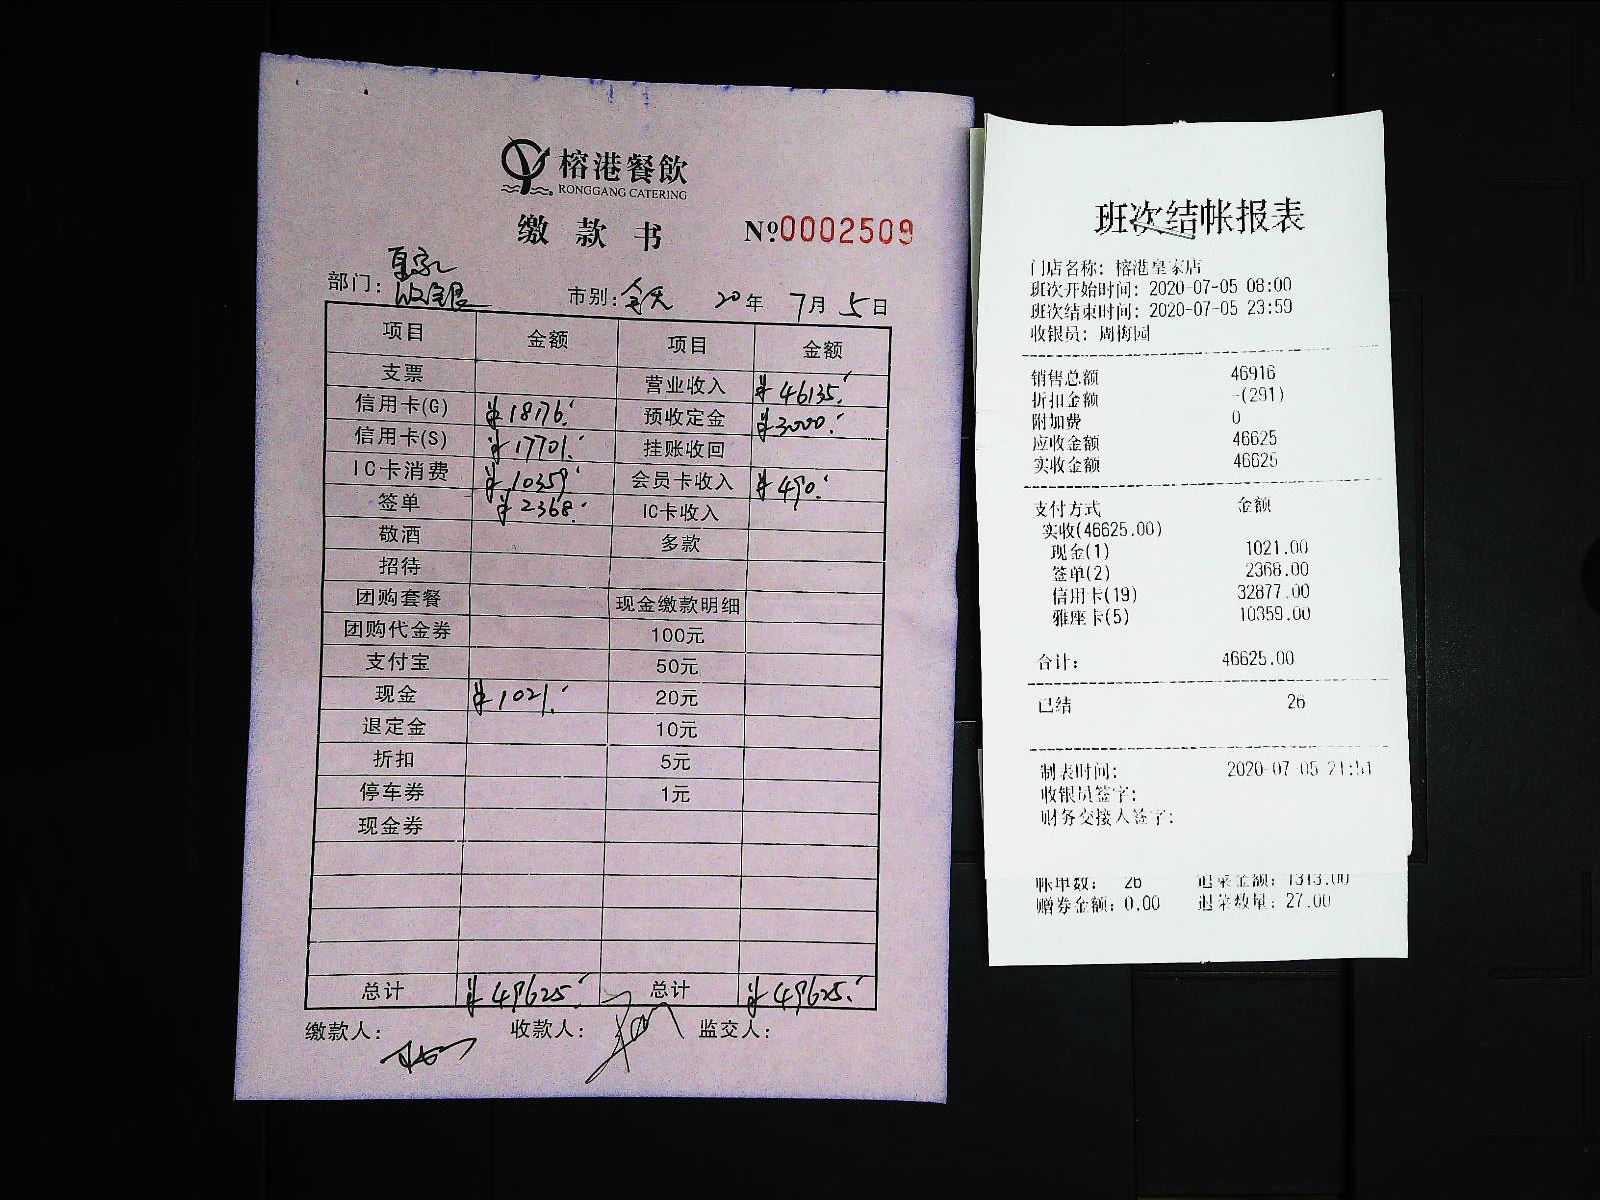 榕港餐飲
RONGGANG CATERING
缴款书 №0002509
部门: 皇家收银 市别: 全天 20年 7月 5日
项目 金额 项目 金额
支票 营业收入 ¥46135.
信用卡(G) ¥18176. 预收定金 ¥3000.
信用卡(S) ¥17701. 挂账收回
IC卡消费 ¥10359. 会员卡收入 ¥490.
签单 ¥2368. IC卡收入
敬酒 多款
招待
团购套餐 现金缴款明细
团购代金券 100元
支付宝 50元
现金 ¥1021. 20元
退定金 10元
折扣 5元
停车券 1元
现金券
总计 ¥49625. 总计 ¥49625.
缴款人: 收款人: 监交人:
班次结帐报表
门店名称: 榕港皇家店
班次开始时间: 2020-07-05 08:00
班次结束时间: 2020-07-05 23:59
收银员: 周梅园
销售总额 46916
折扣金额 -(291)
附加费 0
应收金额 46625
实收金额 46625
支付方式 金额
实收(46625.00)
现金(1) 1021.00
签单(2) 2368.00
信用卡(19) 32877.00
雅座卡(5) 10359.00
合计: 46625.00
已结 26
制表时间: 2020-07-05 21:51
收银员签字:
财务交接人签字:
帐单数: 26 退菜金额: 1313.00
赠券金额: 0.00 退菜数量: 27.00